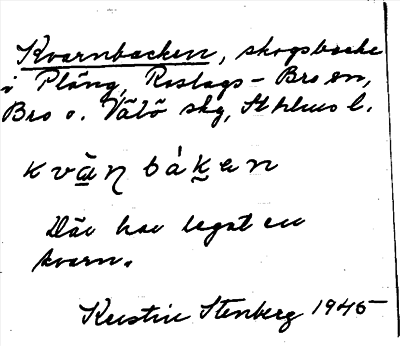 Kvarnbacken, skogsbacke
i Pläng, Roslags-Bro sn,
Bro o. Vätö skg, Sthlms l.
kvą̀ɳ bák̬en
Där har legat en
kvarn.
Kerstin Stenberg 1945